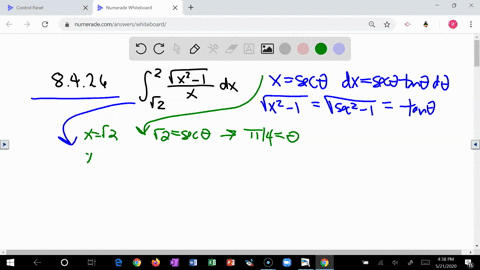 Control Panel
Numerade Whiteboard
numerade.com/answers/whiteboard/
8.4.26 ∫_{√2}^{2} √(x²-1)/x dx
x = secθ dx = secθ tanθ dθ
√(x²-1) = √(sec²-1) = tanθ
x=√2 √2 = secθ → π/4 = θ
4:38 PM
5/21/2020